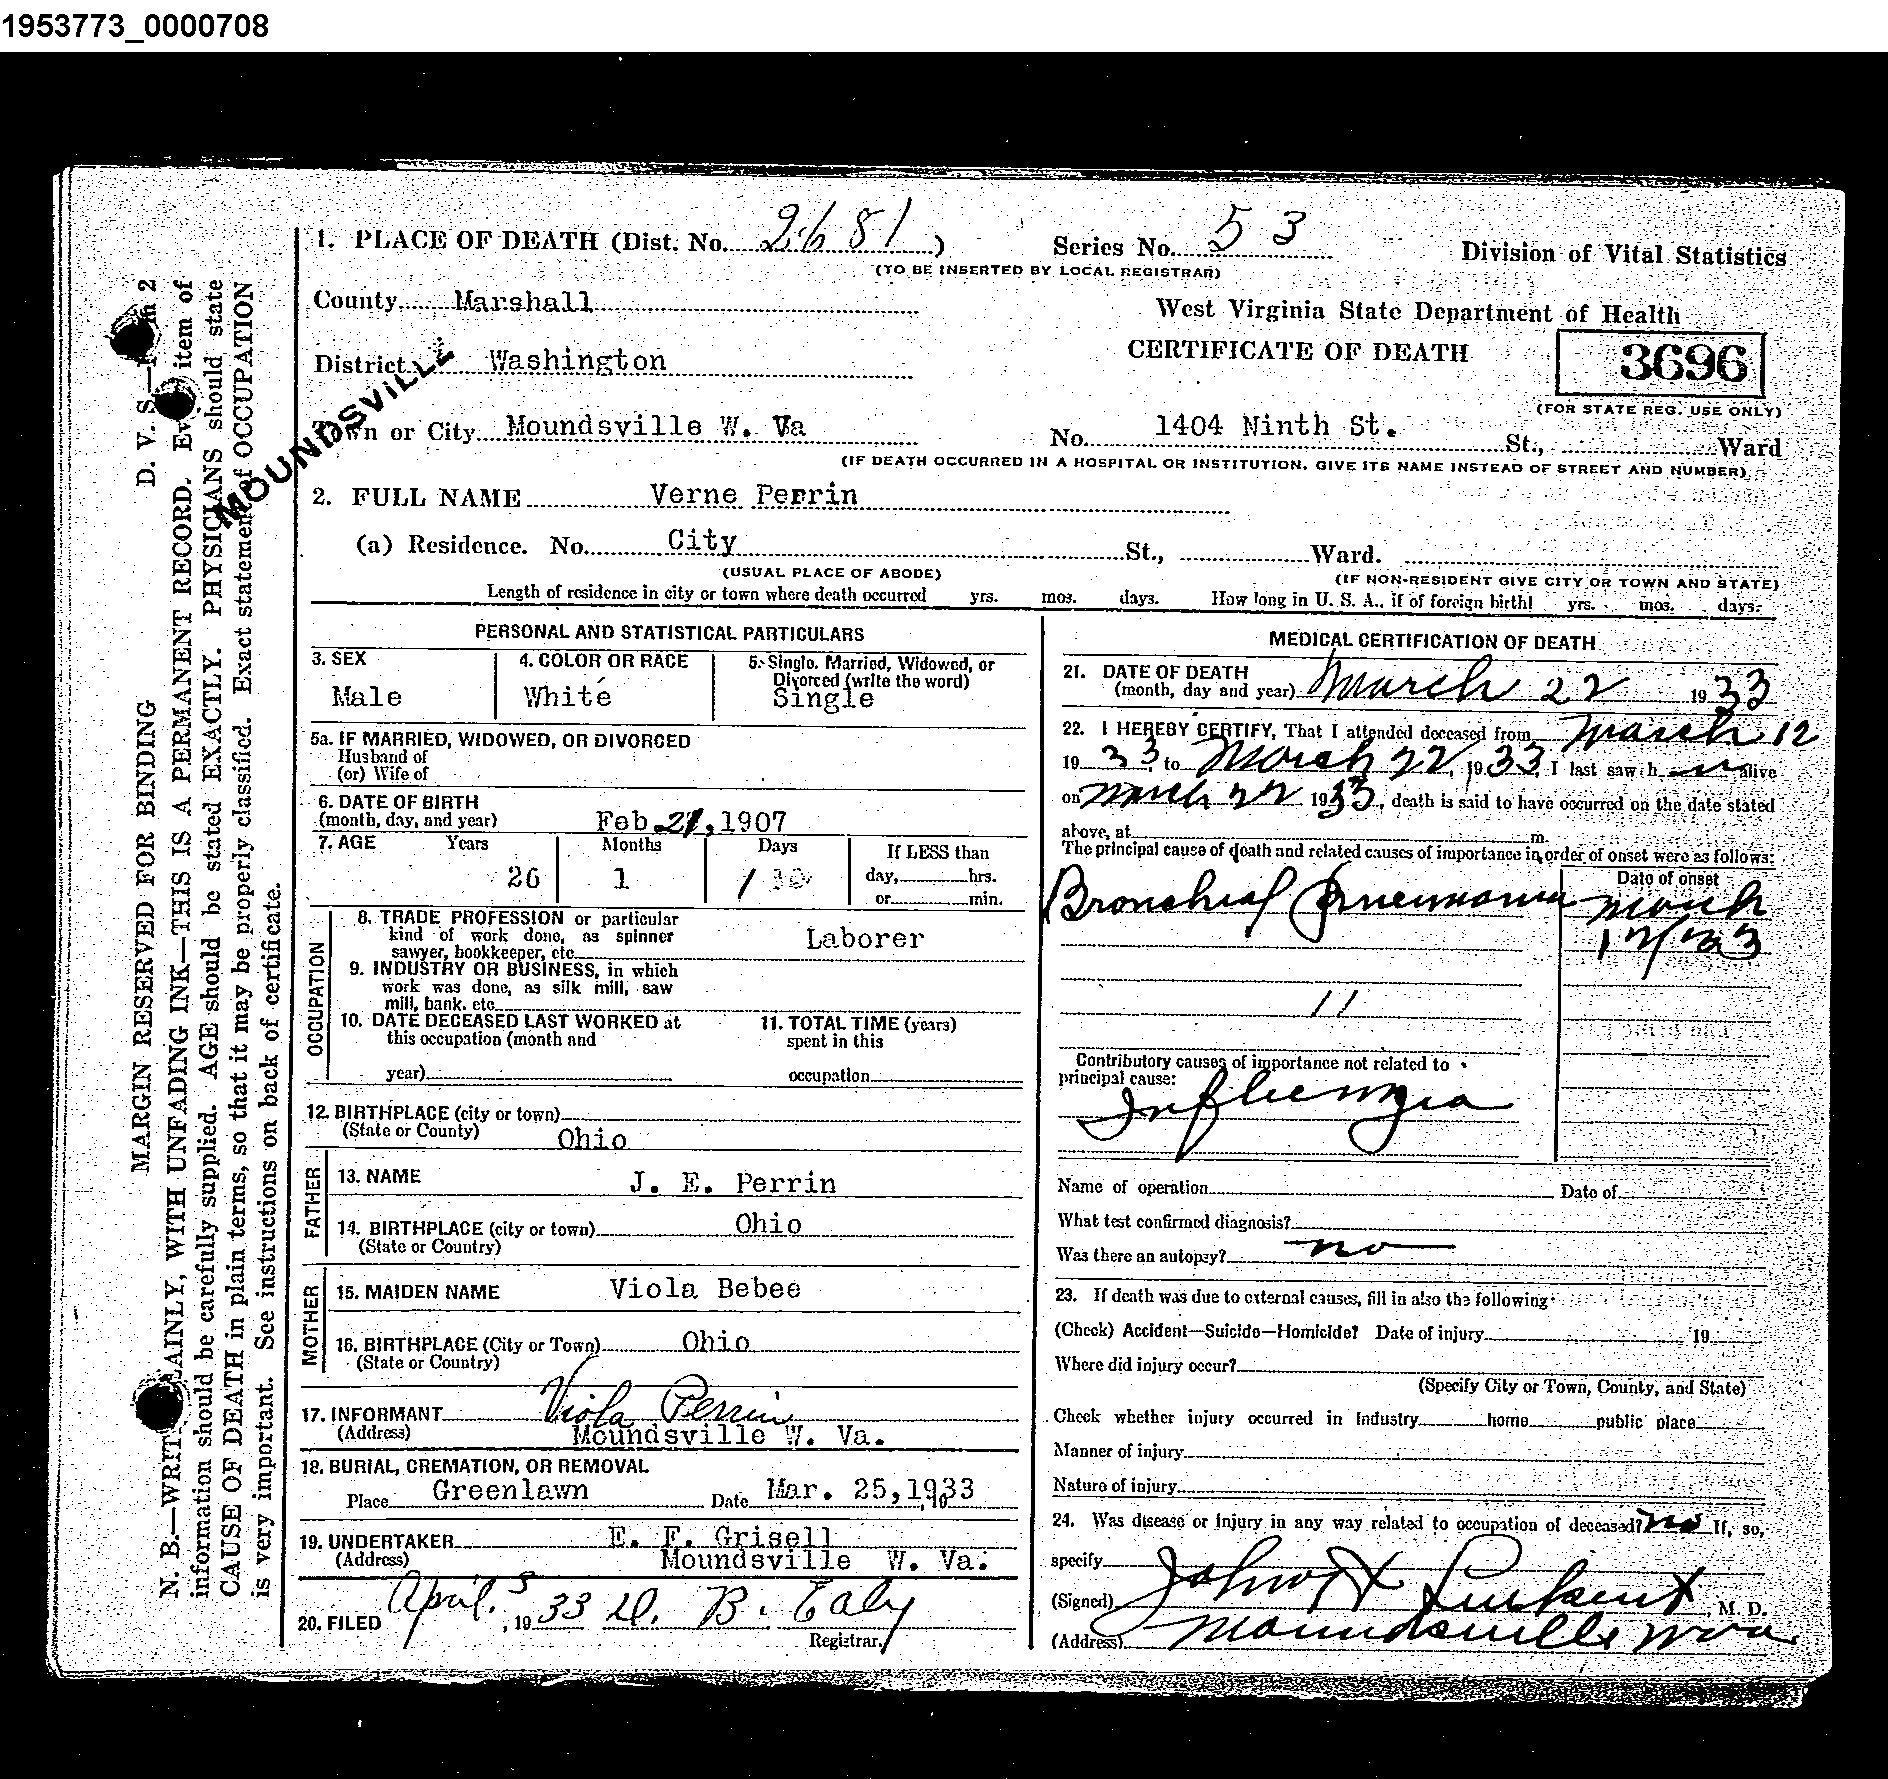 1953773_0000708
1. PLACE OF DEATH (Dist. No. 2681)
Series No. 53
Division of Vital Statistics
(TO BE INSERTED BY LOCAL REGISTRAR)
County Marshall
West Virginia State Department of Health
CERTIFICATE OF DEATH
3696
(FOR STATE REG. USE ONLY)
District Washington
MOUNDSVILLE
Town or City Moundsville W. Va
No. 1404 Ninth St. St., Ward
(IF DEATH OCCURRED IN A HOSPITAL OR INSTITUTION, GIVE ITS NAME INSTEAD OF STREET AND NUMBER)
2. FULL NAME Verne Perrin
(a) Residence. No. City St., Ward.
(USUAL PLACE OF ABODE)
(IF NON-RESIDENT GIVE CITY OR TOWN AND STATE)
Length of residence in city or town where death occurred yrs. mos. days. How long in U. S. A., if of foreign birth? yrs. mos. days.
PERSONAL AND STATISTICAL PARTICULARS
3. SEX
Male
4. COLOR OR RACE
White
5. Single, Married, Widowed, or
Divorced (write the word)
Single
5a. IF MARRIED, WIDOWED, OR DIVORCED
Husband of
(or) Wife of
6. DATE OF BIRTH
(month, day, and year) Feb 21, 1907
7. AGE Years Months Days
26 1 1
If LESS than
day, hrs.
or min.
OCCUPATION
8. TRADE PROFESSION or particular
kind of work done, as spinner
sawyer, bookkeeper, etc. Laborer
9. INDUSTRY OR BUSINESS, in which
work was done, as silk mill, saw
mill, bank, etc.
10. DATE DECEASED LAST WORKED at
this occupation (month and
year)
11. TOTAL TIME (years)
spent in this
occupation
12. BIRTHPLACE (city or town)
(State or County) Ohio
FATHER
13. NAME J. E. Perrin
14. BIRTHPLACE (city or town) Ohio
(State or Country)
MOTHER
15. MAIDEN NAME Viola Bebee
16. BIRTHPLACE (City or Town) Ohio
(State or Country)
17. INFORMANT Viola Perrin
(Address) Moundsville W. Va.
18. BURIAL, CREMATION, OR REMOVAL
Place Greenlawn Date Mar. 25, 1933
19. UNDERTAKER E. F. Grisell
(Address) Moundsville W. Va.
20. FILED April 3, 1933 D. B. Ealy
Registrar.
MEDICAL CERTIFICATION OF DEATH
21. DATE OF DEATH
(month, day and year) March 22 1933
22. I HEREBY CERTIFY, That I attended deceased from March 12
1933, to March 22, 1933, I last saw h im alive
on March 22 1933, death is said to have occurred on the date stated
above, at m.
The principal cause of death and related causes of importance in order of onset were as follows:
Date of onset
Bronchial Pneumonia March
12/33
11
Contributory causes of importance not related to
principal cause:
Influenzia
Name of operation Date of
What test confirmed diagnosis?
Was there an autopsy? no
23. If death was due to external causes, fill in also the following
(Check) Accident—Suicide—Homicide? Date of injury 19
Where did injury occur?
(Specify City or Town, County, and State)
Check whether injury occurred in Industry home public place
Manner of injury
Nature of injury
24. Was disease or injury in any way related to occupation of deceased? no If, so,
specify
(Signed) , M. D.
(Address) Moundsville W Va
D. V. S.
MARGIN RESERVED FOR BINDING
N. B.—WRITE PLAINLY, WITH UNFADING INK—THIS IS A PERMANENT RECORD. Every item of
information should be carefully supplied. AGE should be stated EXACTLY. PHYSICIANS should state
CAUSE OF DEATH in plain terms, so that it may be properly classified. Exact statement of OCCUPATION
is very important. See instructions on back of certificate.